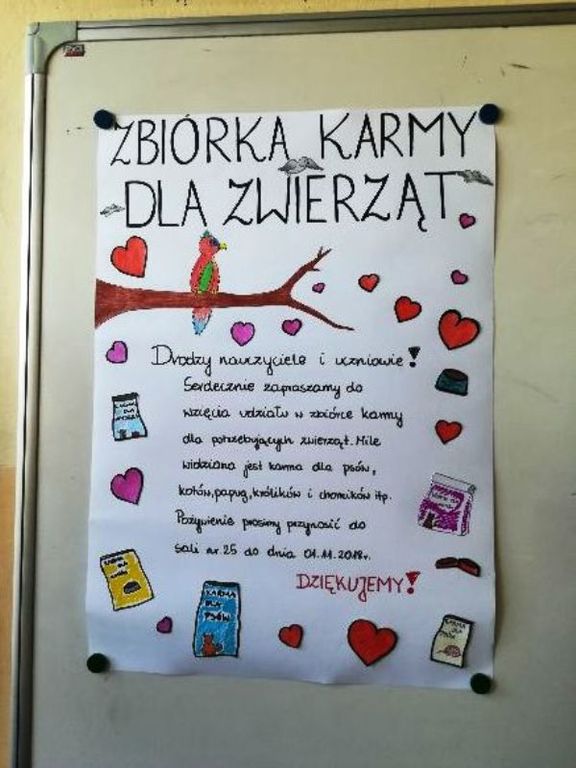 ZBIÓRKA KARMY
DLA ZWIERZĄT
Drodzy nauczyciele i uczniowie!
Serdecznie zapraszamy do
wzięcia udziału w zbiórce karmy
dla potrzebujących zwierząt. Mile
widziana jest karma dla psów,
kotów, papug, królików i chomików itp.
Pożywienie prosimy przynosić do
sali nr. 25 do dnia 01.11.2018r.
DZIĘKUJEMY!
KARMA
DLA
PSÓW
KARMA
DLA